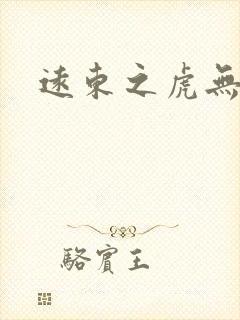 遠東之虎無
駱賓王